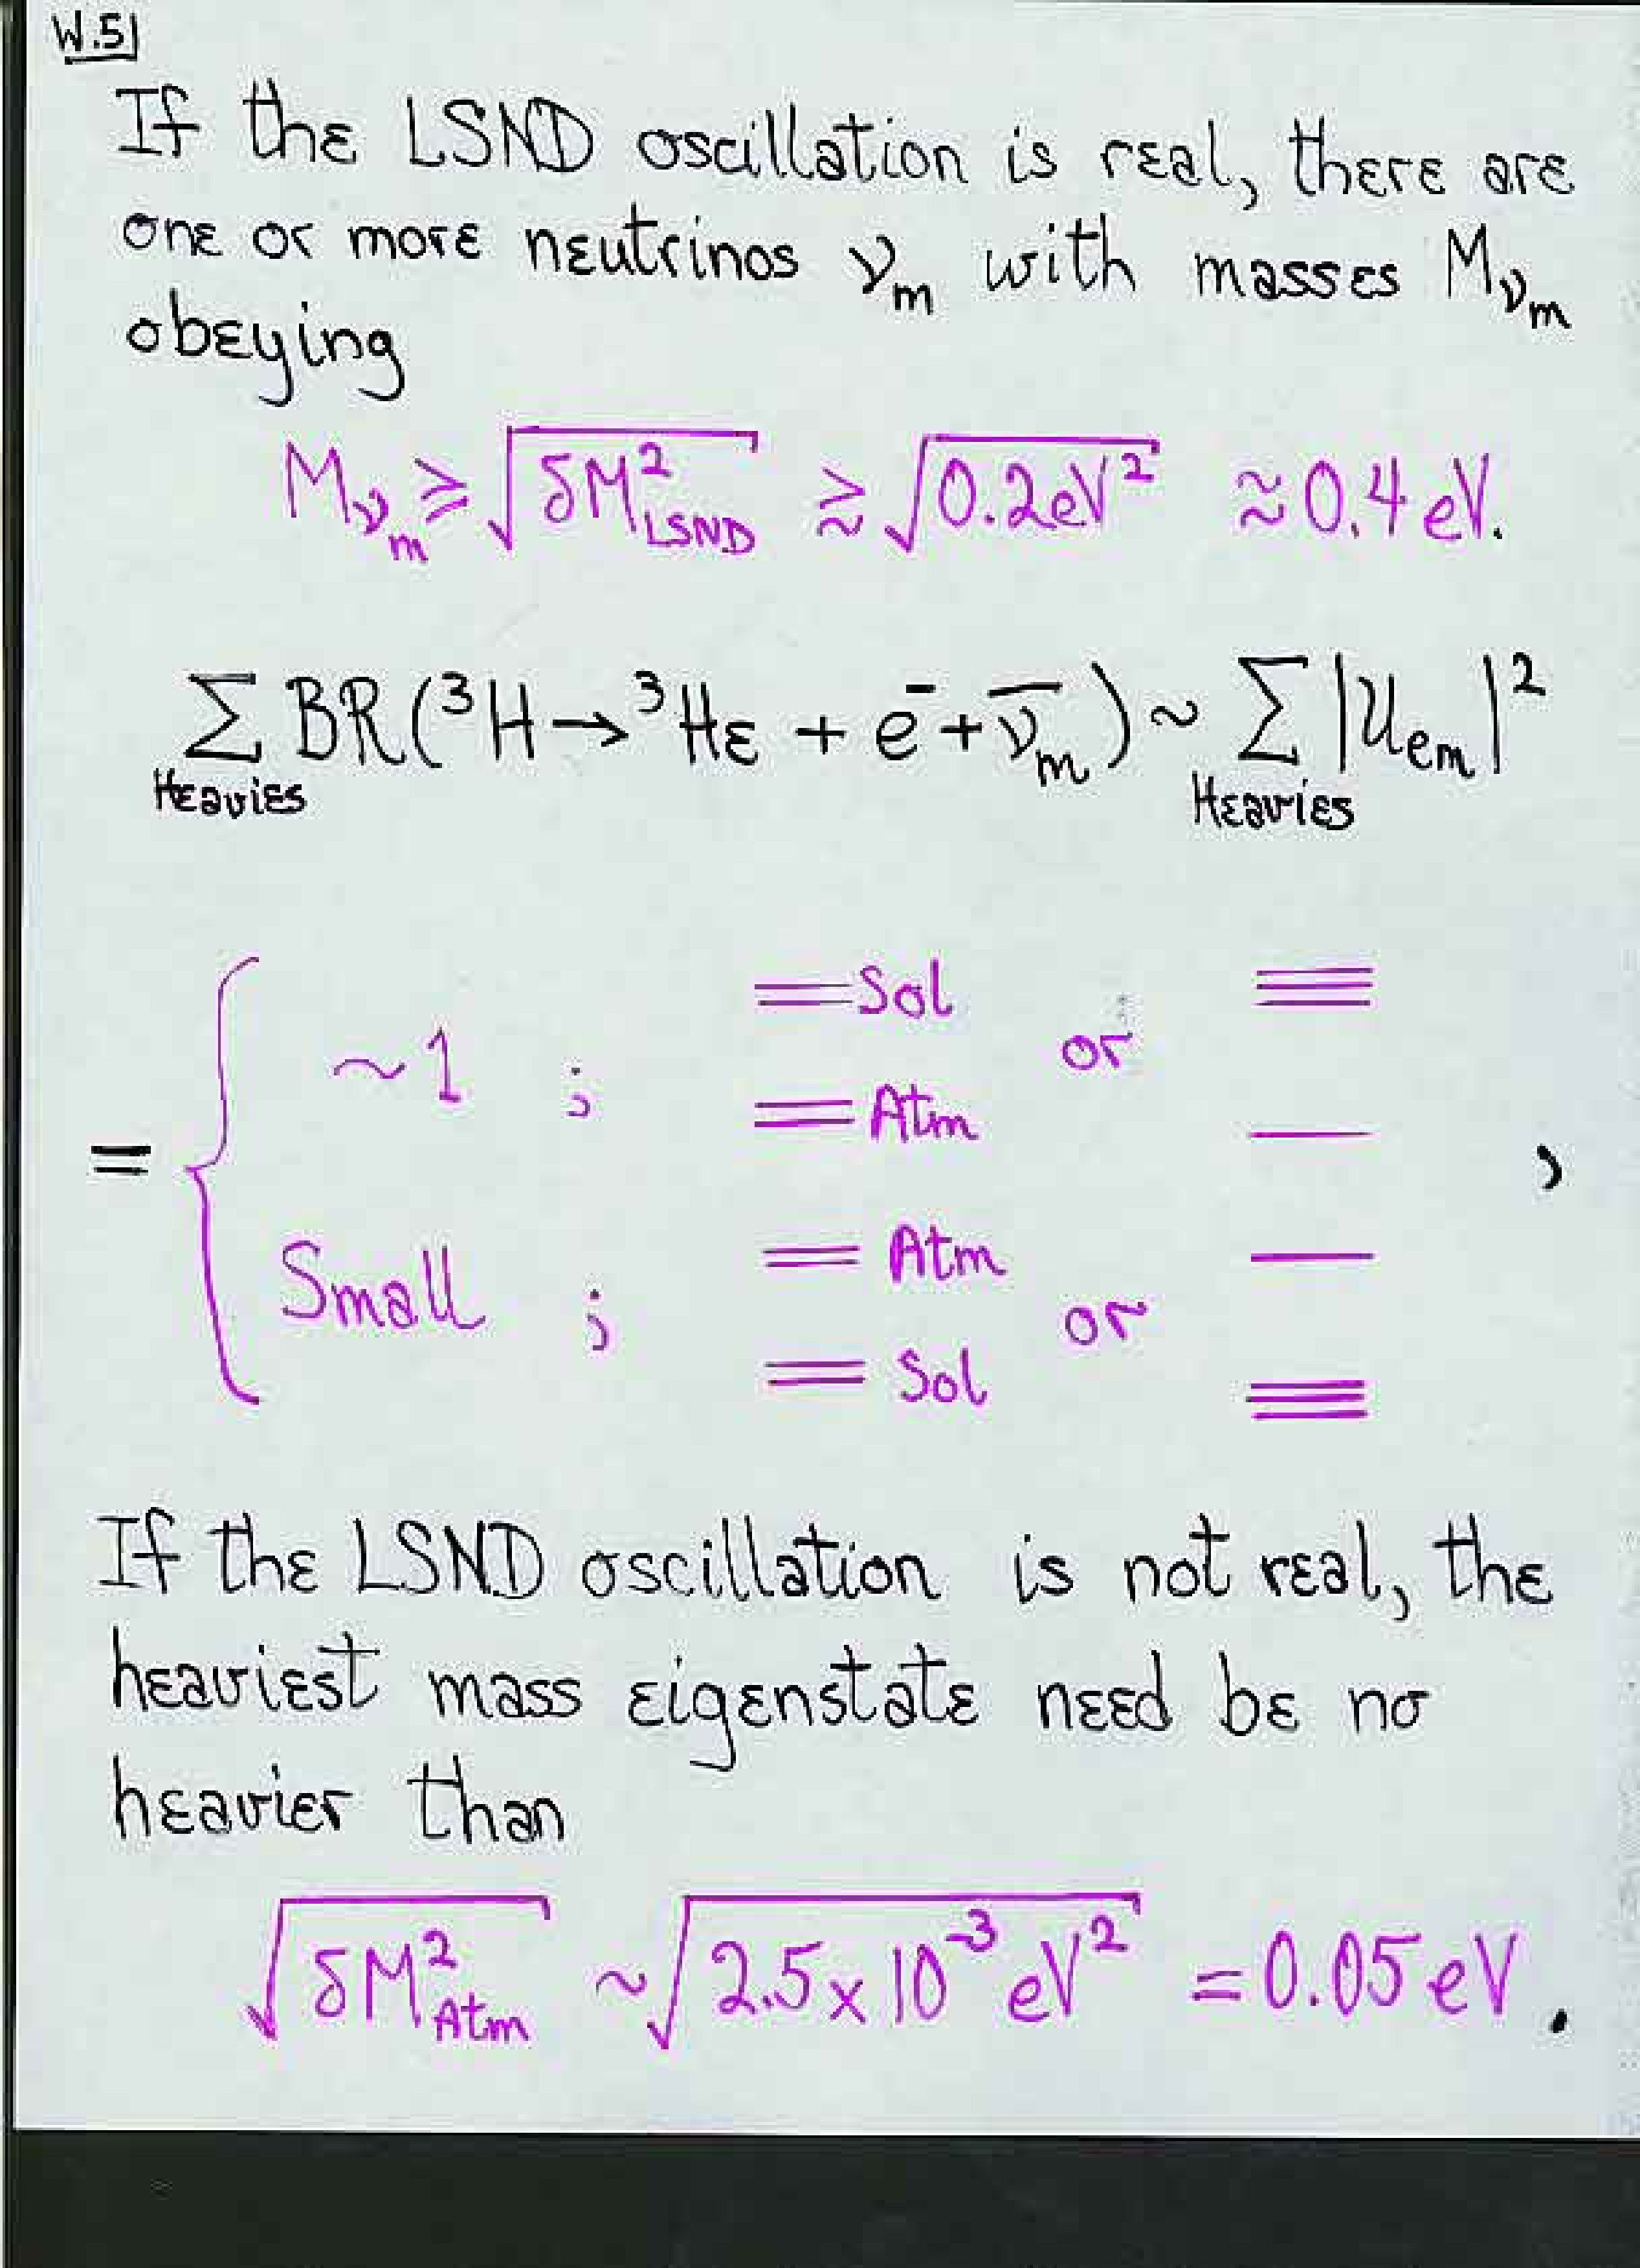 W.51
If the LSND oscillation is real, there are
one or more neutrinos ν_m with masses M_ν_m
obeying
M_ν_m ≥ √(δM²_LSND) ≳ √(0.2eV²) ≈ 0.4 eV.
∑ BR(³H → ³He + e⁻ + ν̄_m) ~ ∑ |U_em|²
Heavies Heavies
= { ~1 ; ═ Sol or ≡
═ Atm — ,
Small ; ═ Atm or —
═ Sol ≡
If the LSND oscillation is not real, the
heaviest mass eigenstate need be no
heavier than
√(δM²_Atm) ~ √(2.5×10⁻³ eV²) = 0.05 eV.